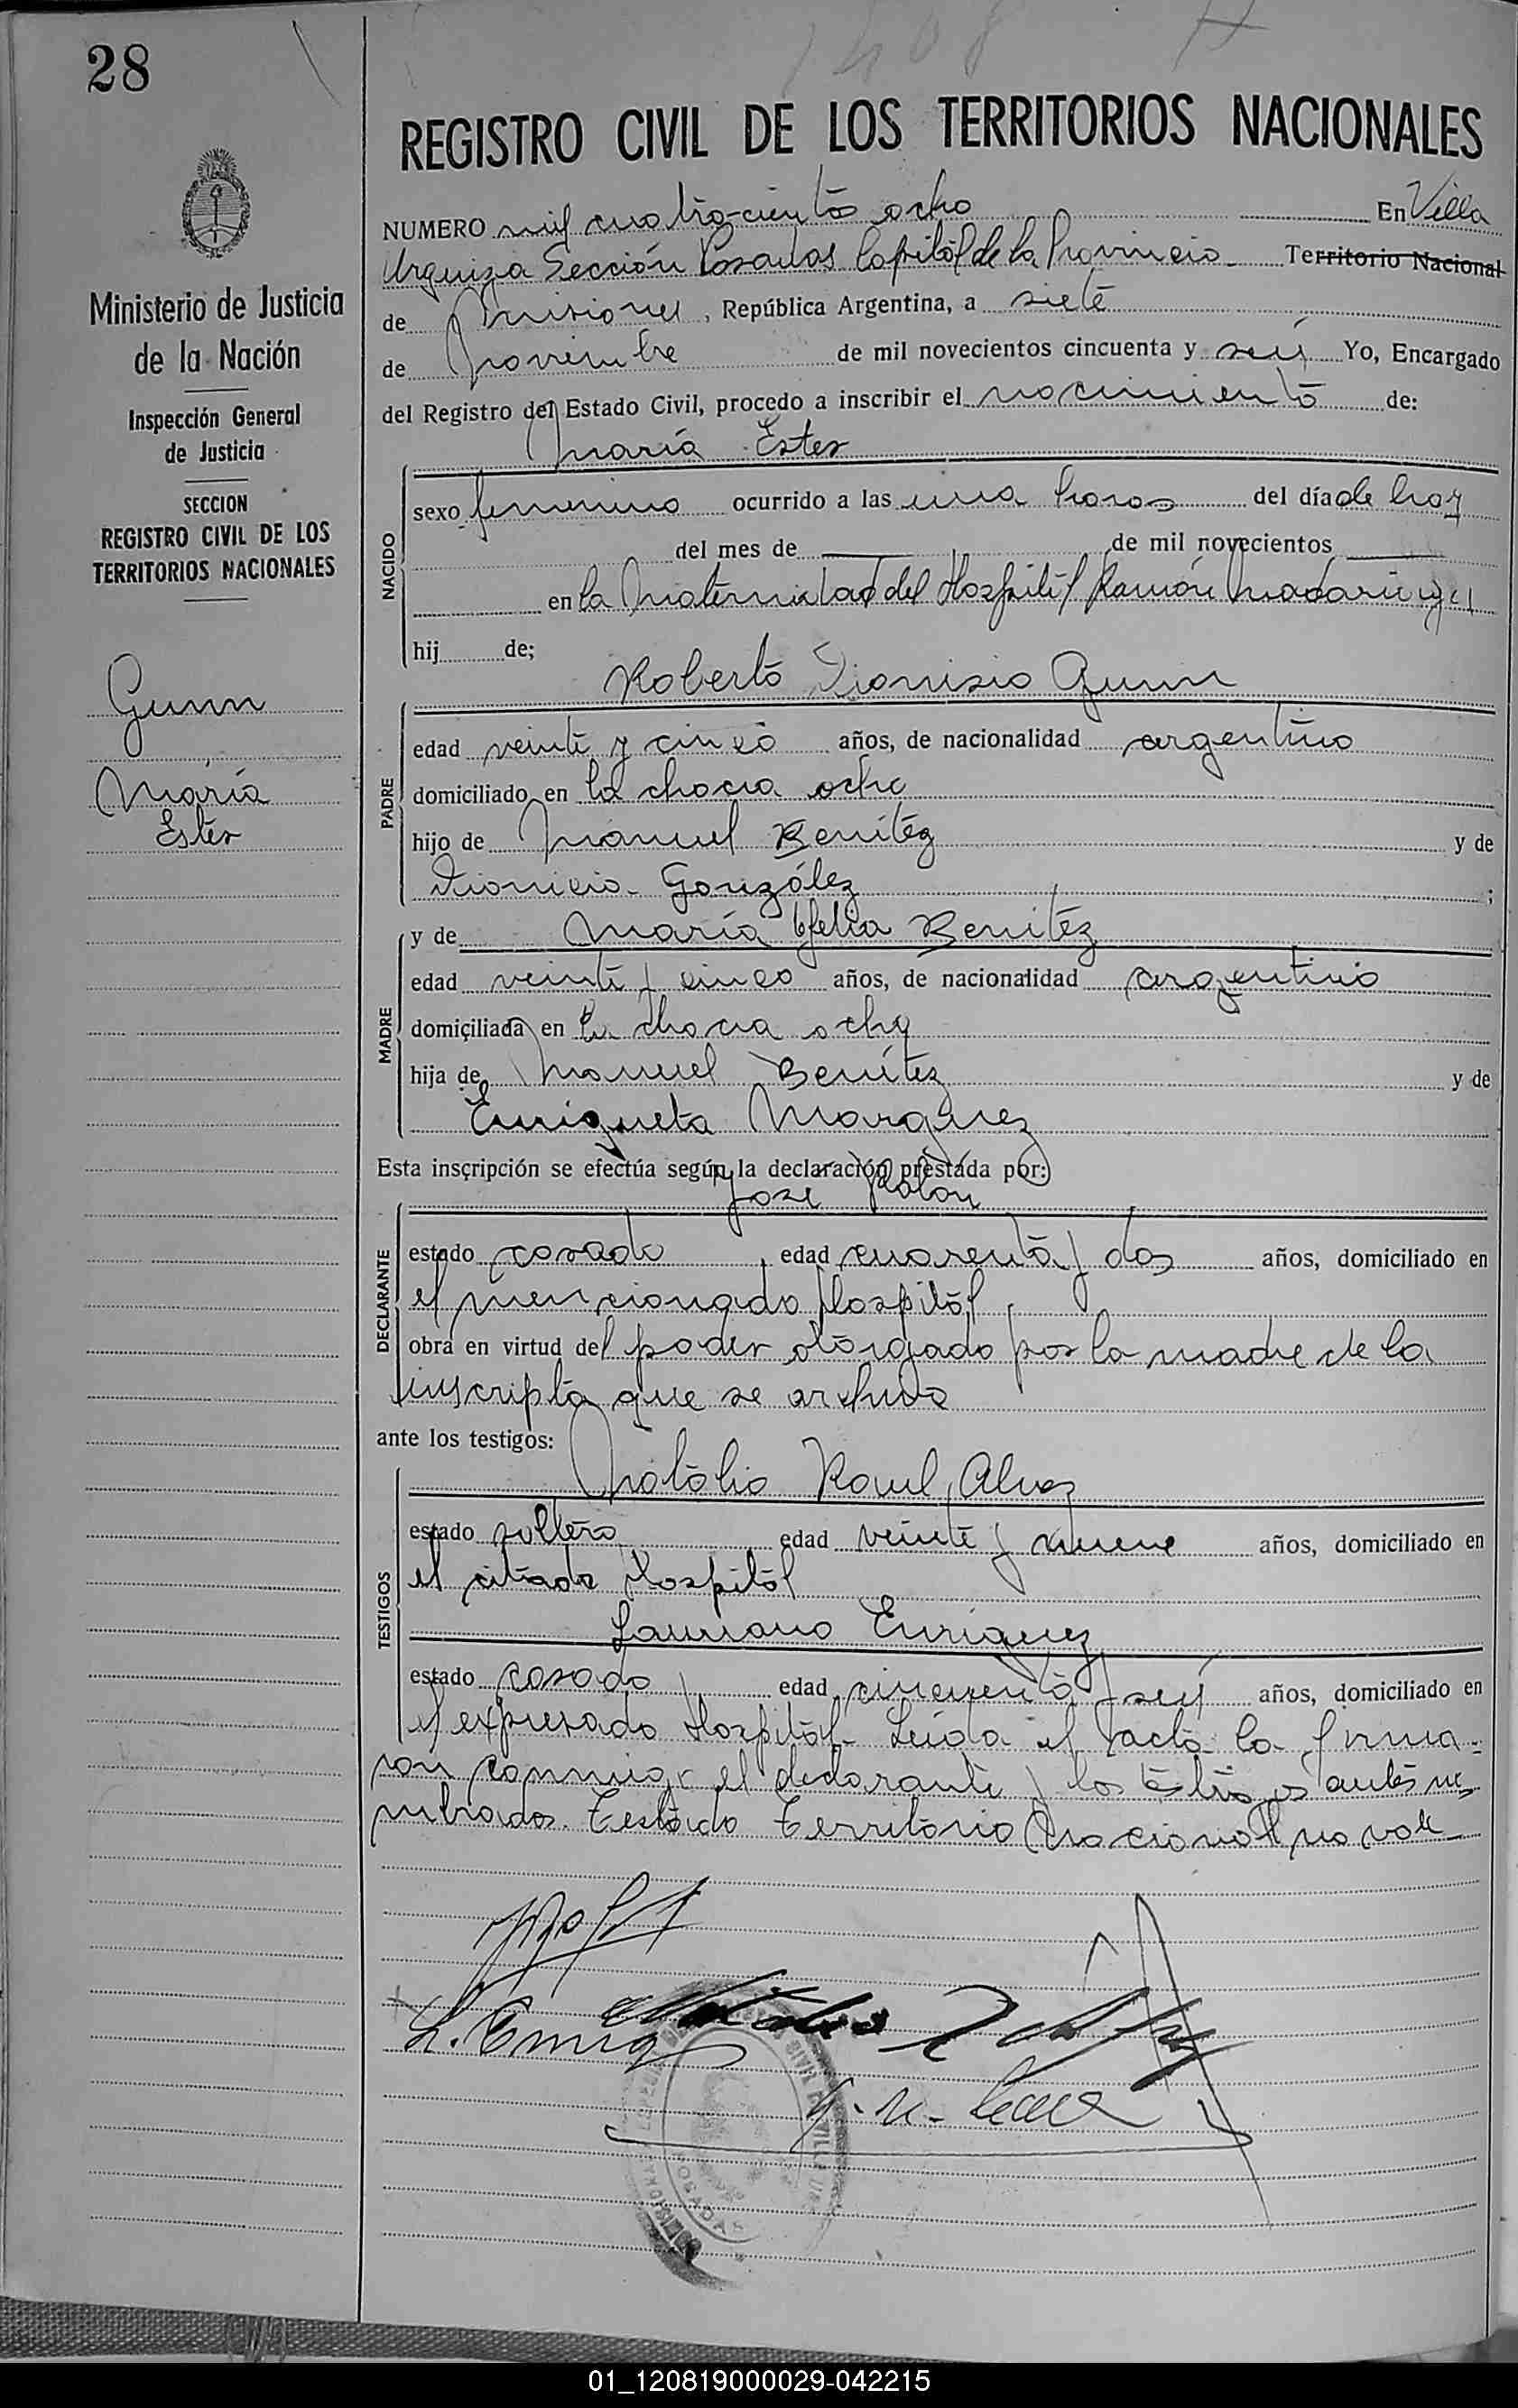 28
1408
REGISTRO CIVIL DE LOS TERRITORIOS NACIONALES
NUMERO mil cuatro-cientos ocho En Villa
Urquiza Sección Posadas Capital de la Provincia Territorio Nacional
de Misiones, República Argentina, a siete
de Noviembre de mil novecientos cincuenta y seis Yo, Encargado
del Registro del Estado Civil, procedo a inscribir el nacimiento de:
María Ester
NACIDO
sexo femenino ocurrido a las una horas del día de hoy
del mes de de mil novecientos
en la Maternidad del Hospital Ramón Madariaga
hij de;
Roberto Dionisio Gunn
PADRE
edad veinte y cinco años, de nacionalidad argentino
domiciliado en la chacra ocho
hijo de Manuel Benítez y de
Dionicia González ;
MADRE
y de María Ofelia Benítez
edad veinte y cinco años, de nacionalidad argentina
domiciliada en la chacra ocho
hija de Manuel Benítez y de
Enriqueta Marquez
Esta inscripción se efectúa según la declaración prestada por:
José Rolon
DECLARANTE
estado casado, edad cuarenta y dos años, domiciliado en
el mencionado Hospital
obra en virtud del poder otorgado por la madre de la
inscripta que se archiva
ante los testigos:
Natalio Raul Alvez
TESTIGOS
estado soltero edad veinte y nueve años, domiciliado en
el citado Hospital
Lauriano Enriquez
estado casado edad cincuenta y seis años, domiciliado en
el expresado Hospital- Leida el acta la firma-
ron conmigo el declarante y los testigos antes no
mbrados. Testado Territorio Nacional no vale
L. Enriq
Ministerio de Justicia
de la Nación
Inspección General
de Justicia
SECCION
REGISTRO CIVIL DE LOS
TERRITORIOS NACIONALES
Gunn
María
Ester
01_120819000029-042215